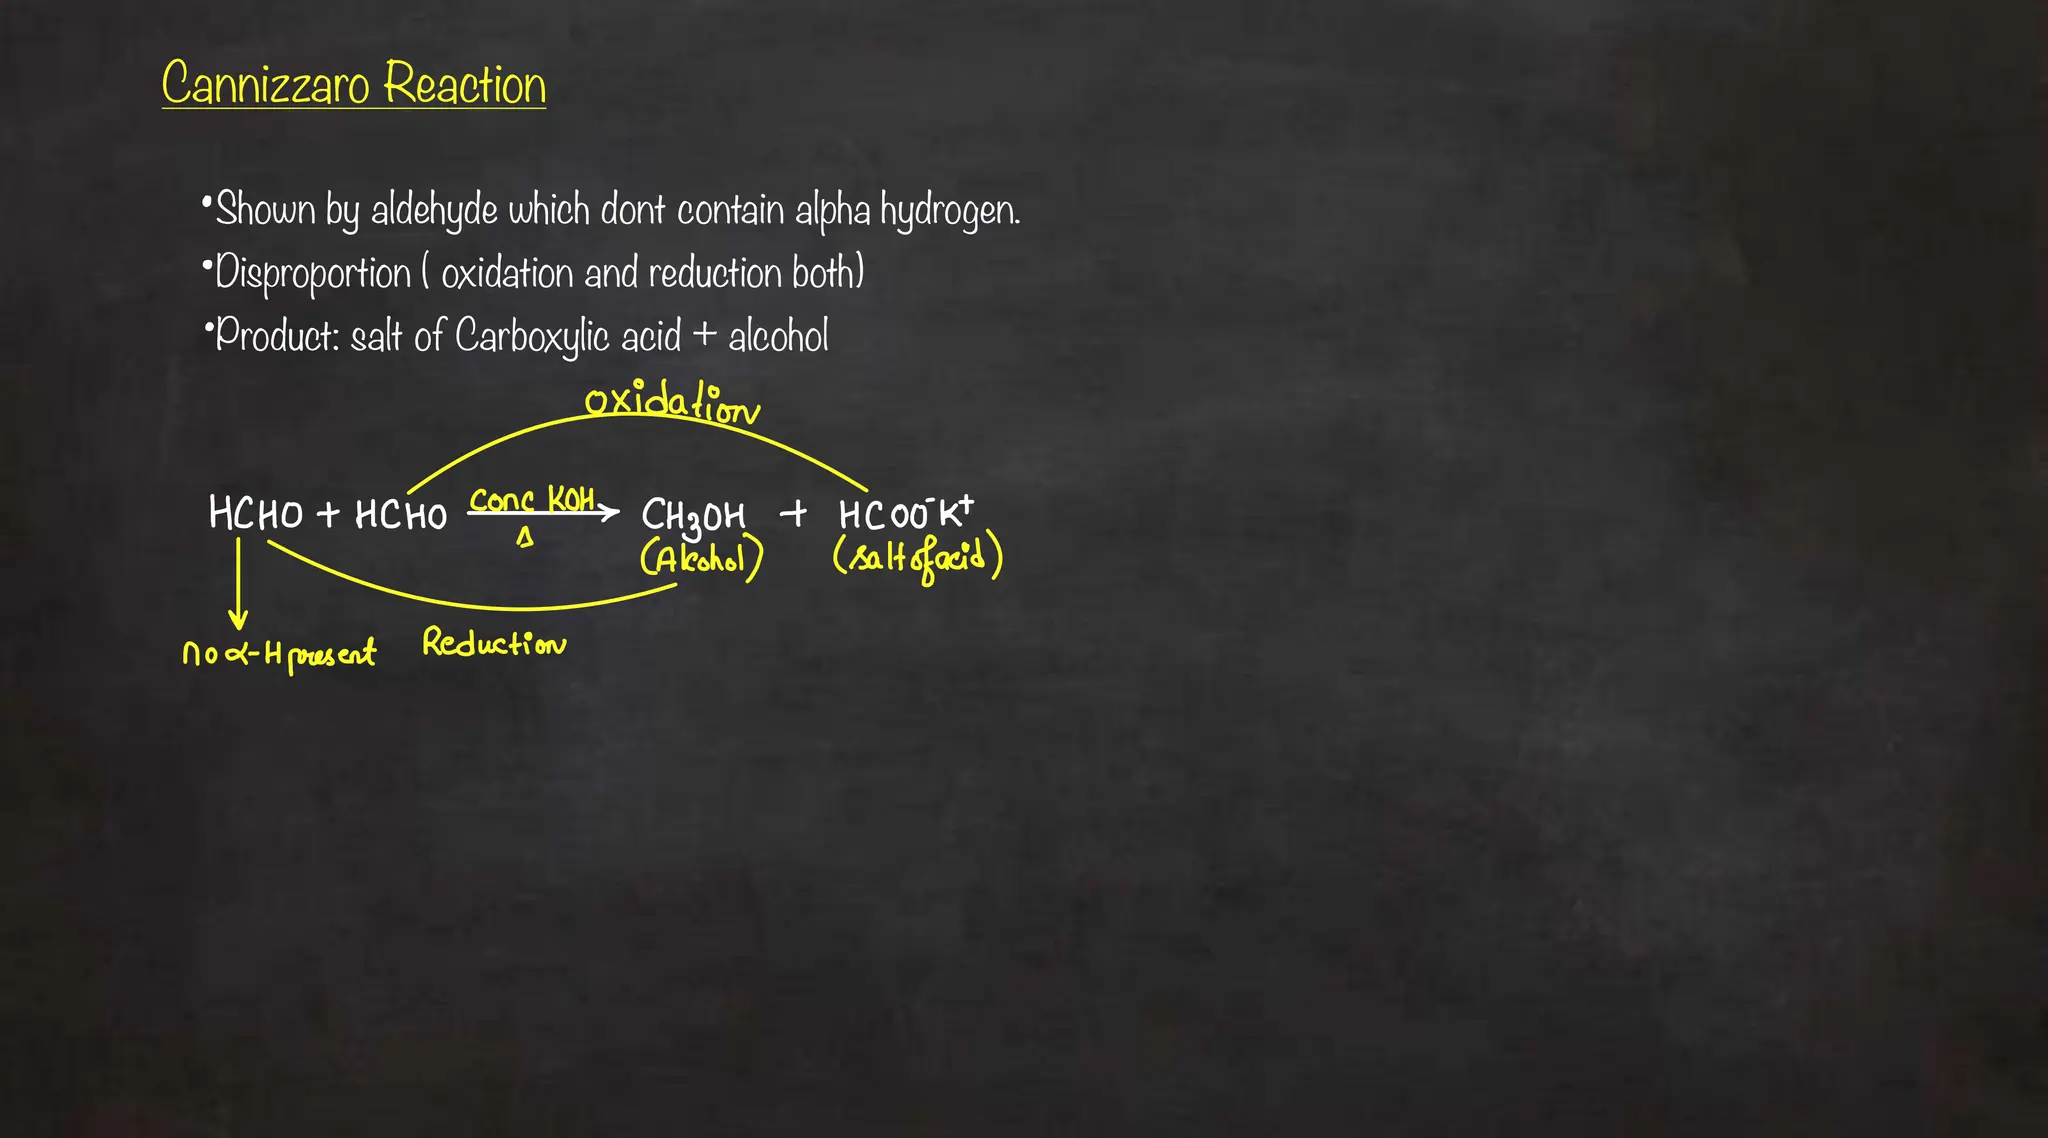 Cannizzaro Reaction
•Shown by aldehyde which dont contain alpha hydrogen.
•Disproportion ( oxidation and reduction both)
•Product: salt of Carboxylic acid + alcohol
oxidation
HCHO + HCHO conc KOH → CH3OH + HCOO⁻K⁺
Δ
(Alcohol) (salt of acid)
no α-H present Reduction